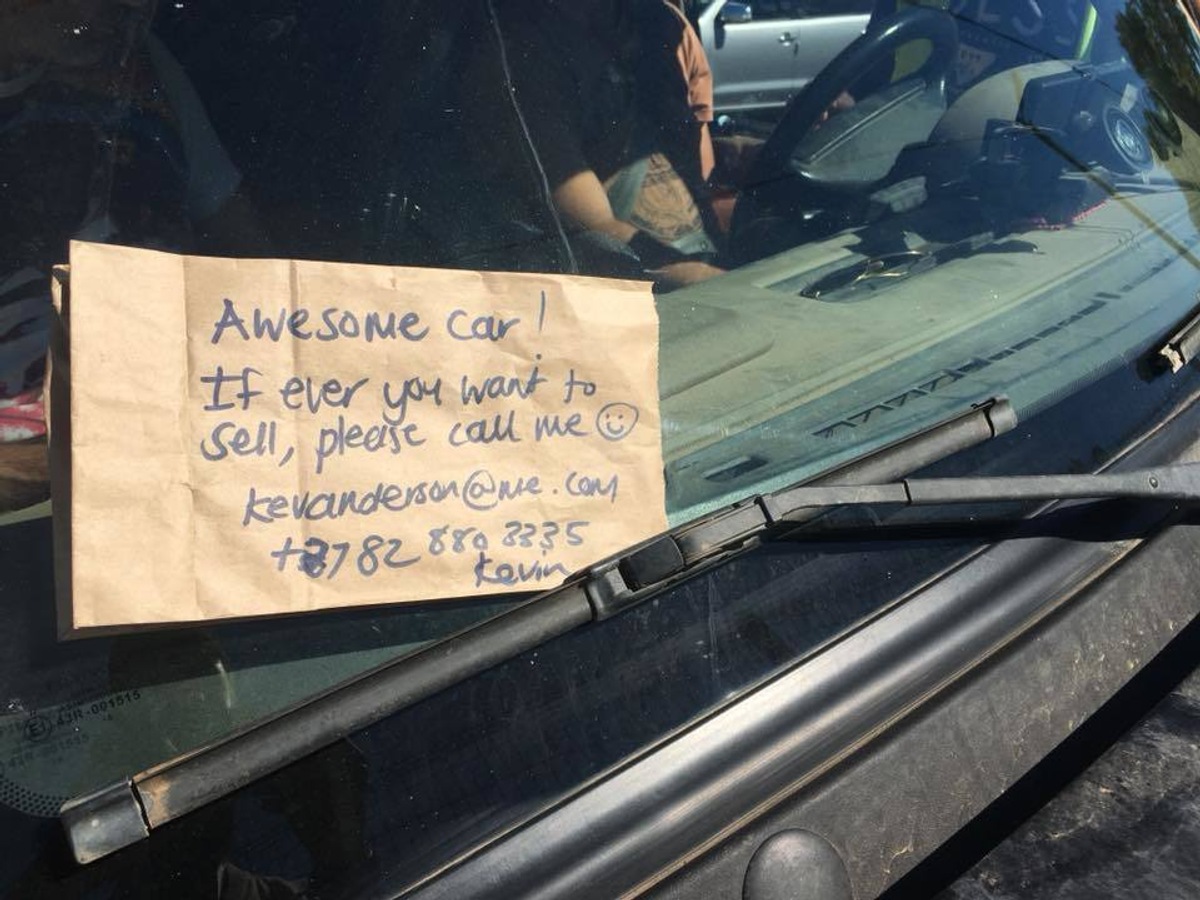 Awesome car!
If ever you want to
sell, please call me ☺
kevanderson@me.com
+3782 880 3335
Kevin
43R-001515